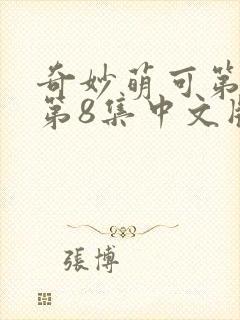 奇妙萌可第
第8集中文
張博